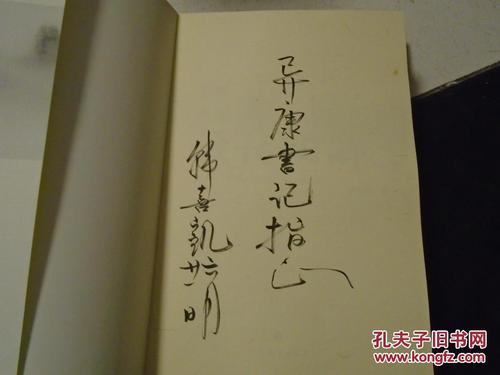 异康書记指正
韩喜凱
六月
廿一日
孔夫子旧书网
www.kongfz.com